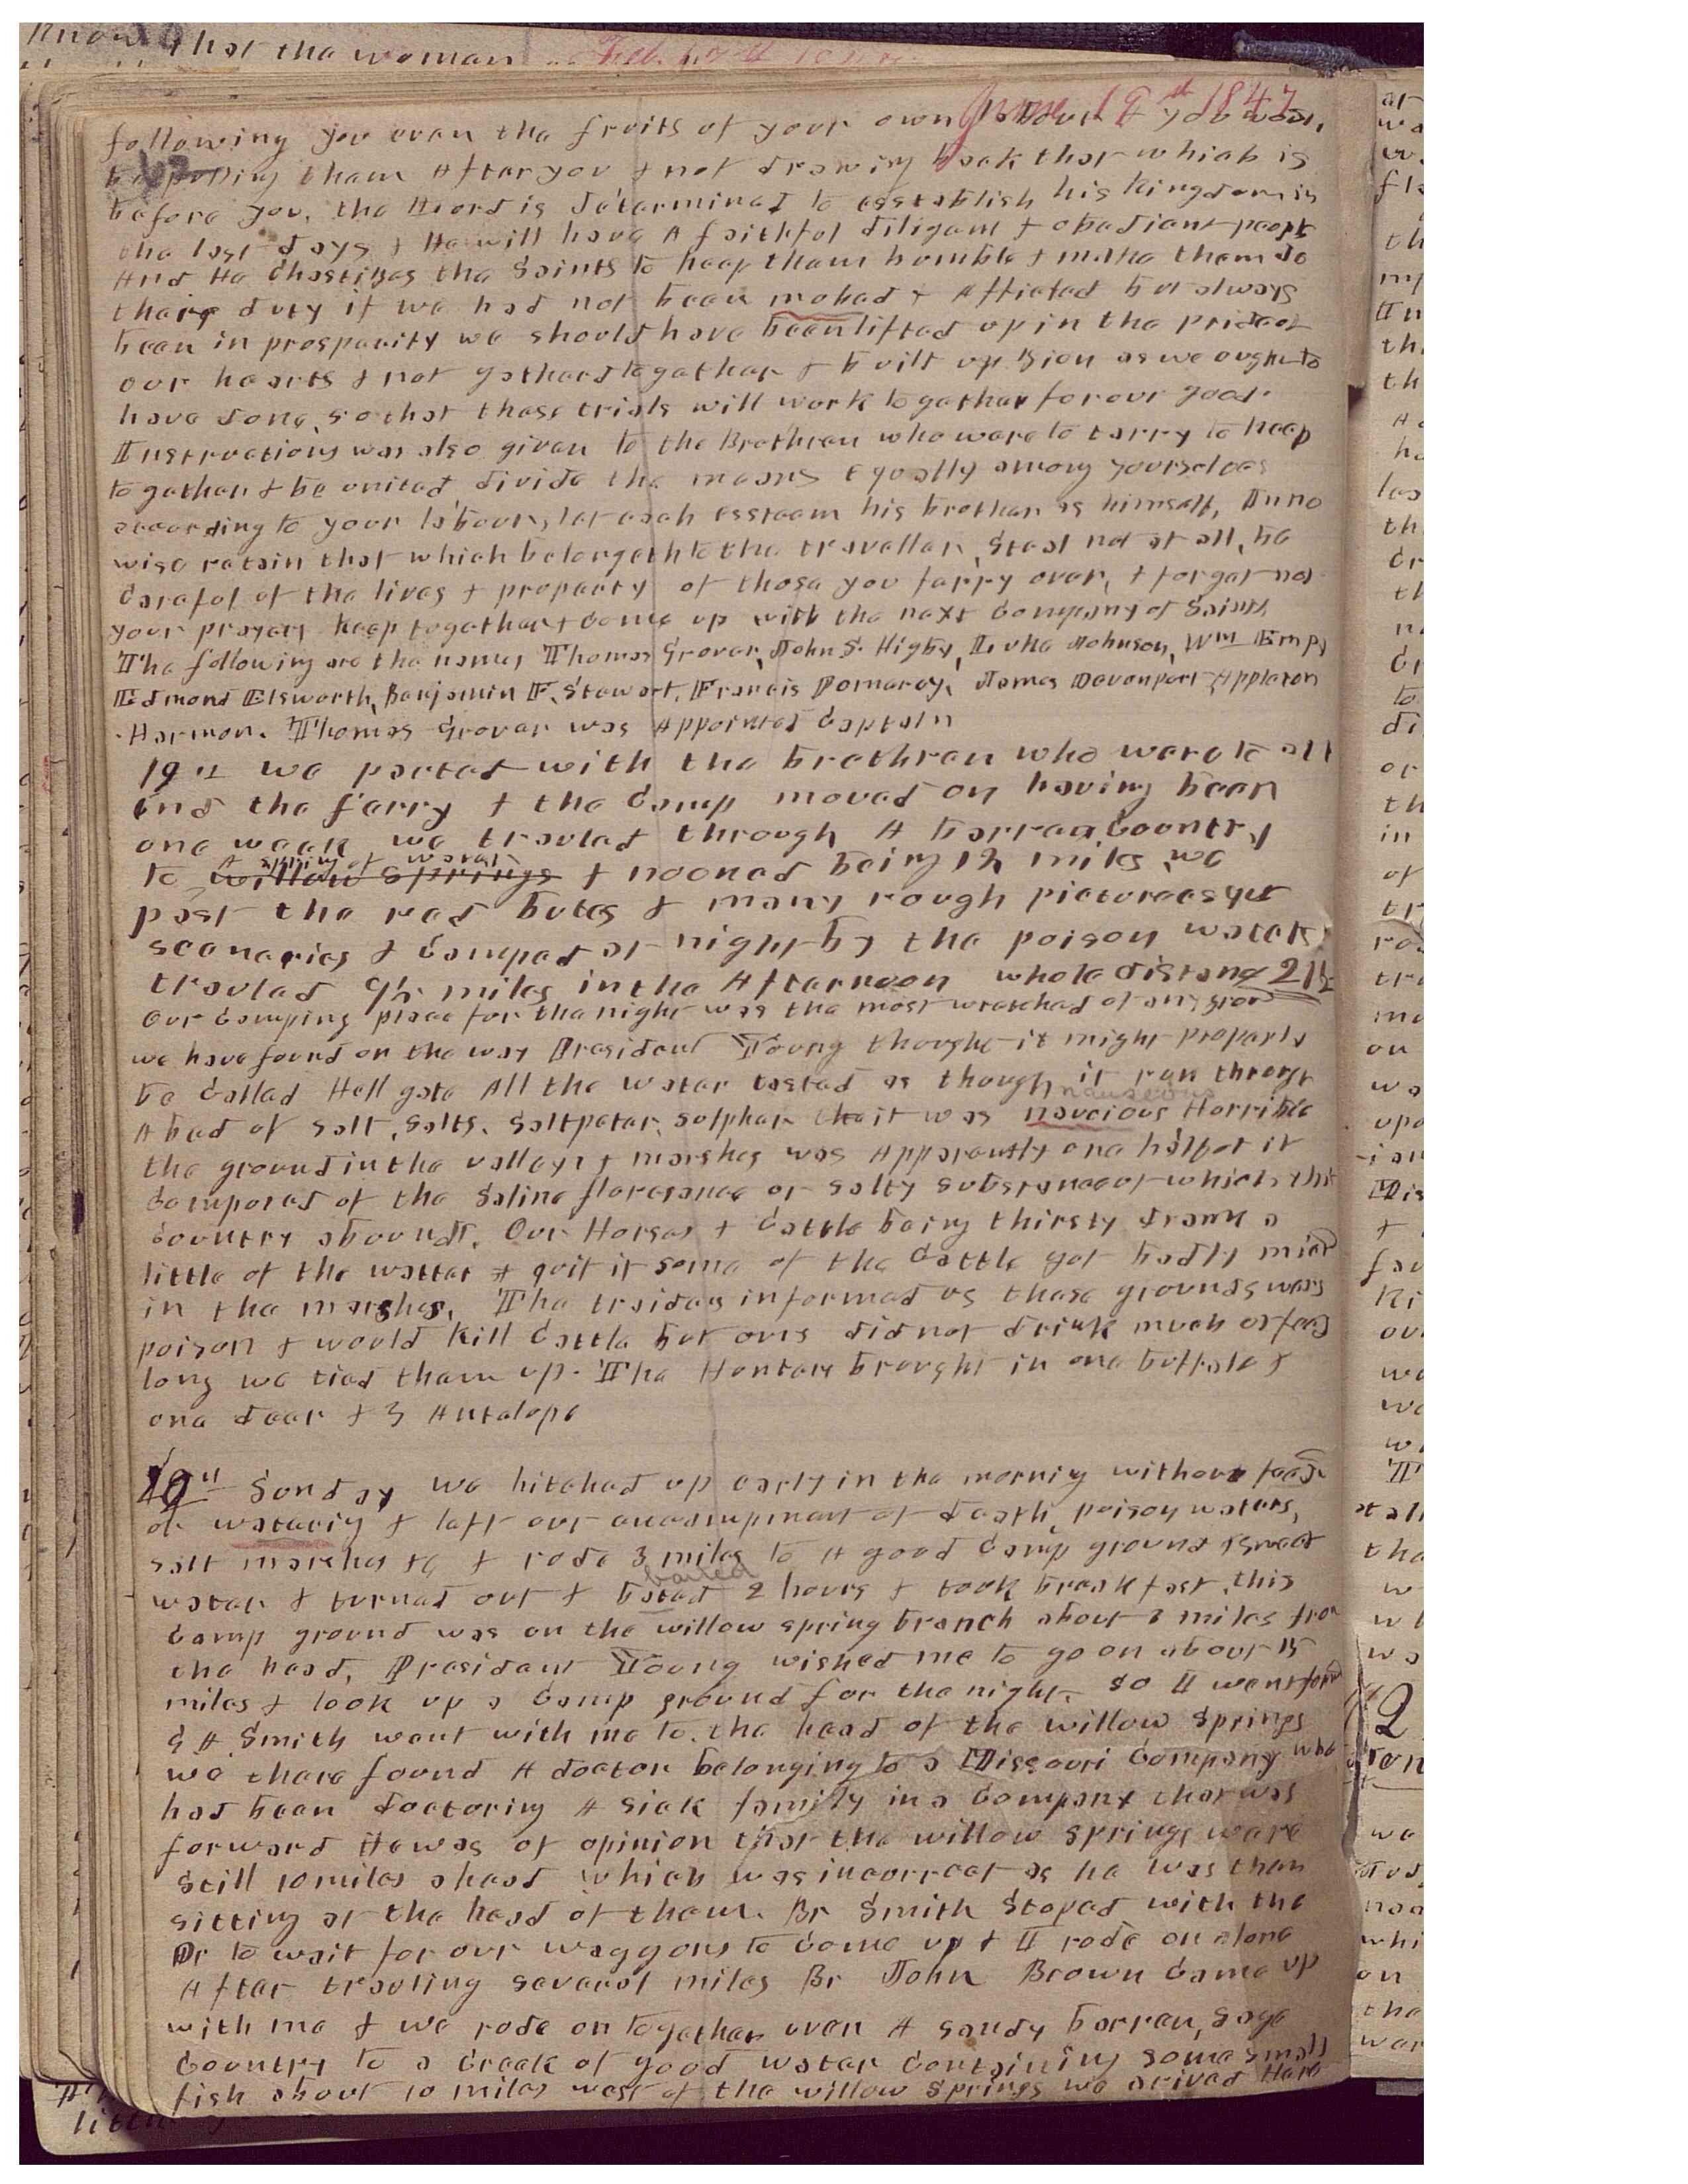 know that the woman
June 19th 1847
following you even the fruits of your own labour & your
be pulling them After you & not drawing back that which is
before you. the Lord is determined to esstablish his kingdom in
the last days & He will have A faithful diligent & obediant people
And He Chastizes the Saints to keep them humble & make them do
there duty if we had not been mobed & Afflicted but always
been in prosperity we should have been lifted up in the pride of
our hearts & not gathered together & built up Zion as we ought to
have done, so that these trials will work together for our good.
Instructions was also given to the Brethren who were to tarry to keep
together & be united, divide the means Equally among yourselves
according to your labours, let each essteem his brother as himself, In no
wise retain that which belongeth to the traveller, Steal not at all, be
Careful of the lives & property of those you farry over, & forget not
your prayers keep together & Come up with the next Company of Saints
The following are the names Thomas Grover, John S. Higby, Luke Johnson, Wm Empy
Edmond Elsworth, Benjamin F. Stewart, Francis Pomeroy, James Devenport Appleton
Harmon. Thomas Grover was Appointed Captain
19th we parted with the brethren who were to att
end the farry & the Camp moved on having been
one week we travled through A barren Country
A spring of water
to willow springs & nooned being 12 miles we
past the red butes & many rough pictureesque
scenaries & Camped at night by the poison water
travled 9½ miles in the Afternoon whole distance 21½
Our Camping place for the night was the most wretched of any ground
we have found on the way President Young thought it might properly
be Called Hell gate All the water tasted as though it run through
nauseous
A bed of salt, salts, saltpeter, sulpher & it was naucious Horrible
the ground in the valleys & marshes was Apparently one half of it
Composed of the Saline floresance or salty substance of which this
Country abounds. Our Horses & Cattle being thirsty drank a
little of the watter & quit it some of the Cattle got badly mired
in the marshes. The traiders informed us these grounds wars
poison & would kill Cattle but ours did not drink much or feed
long we tied them up. The Hunters brought in one buffalo &
one deer & 3 Antalope
20th Sunday we hitched up early in the morning without feeding
or watering & left our encampment of death, poison waters,
salt marshes &c & rode 3 miles to A good Camp ground & sweet
baited
water & turned out & bated 2 hours & took breakfast, this
Camp ground was on the willow spring branch about 2 miles from
the head. President Young wished me to go on about 15
miles & look up a Camp ground for the night. So I went forwd
G A Smith went with me to the head of the willow springs
we there found A doctor belonging to a Missouri Company who
had been doctoring A sick family in a Company that was
forward He was of opinion that the willow springs ware
still 10 miles ahead which was incorrect as he was then
sitting at the head of them. Br Smith Stoped with the
Dr to wait for our waggons to Come up & I rode on alone
After travling several miles Br John Brown Came up
with me & we rode on together over A sandy barren, sage
Country to a Creek of good water Containing some small
fish about 10 miles west of the willow springs we arived Here